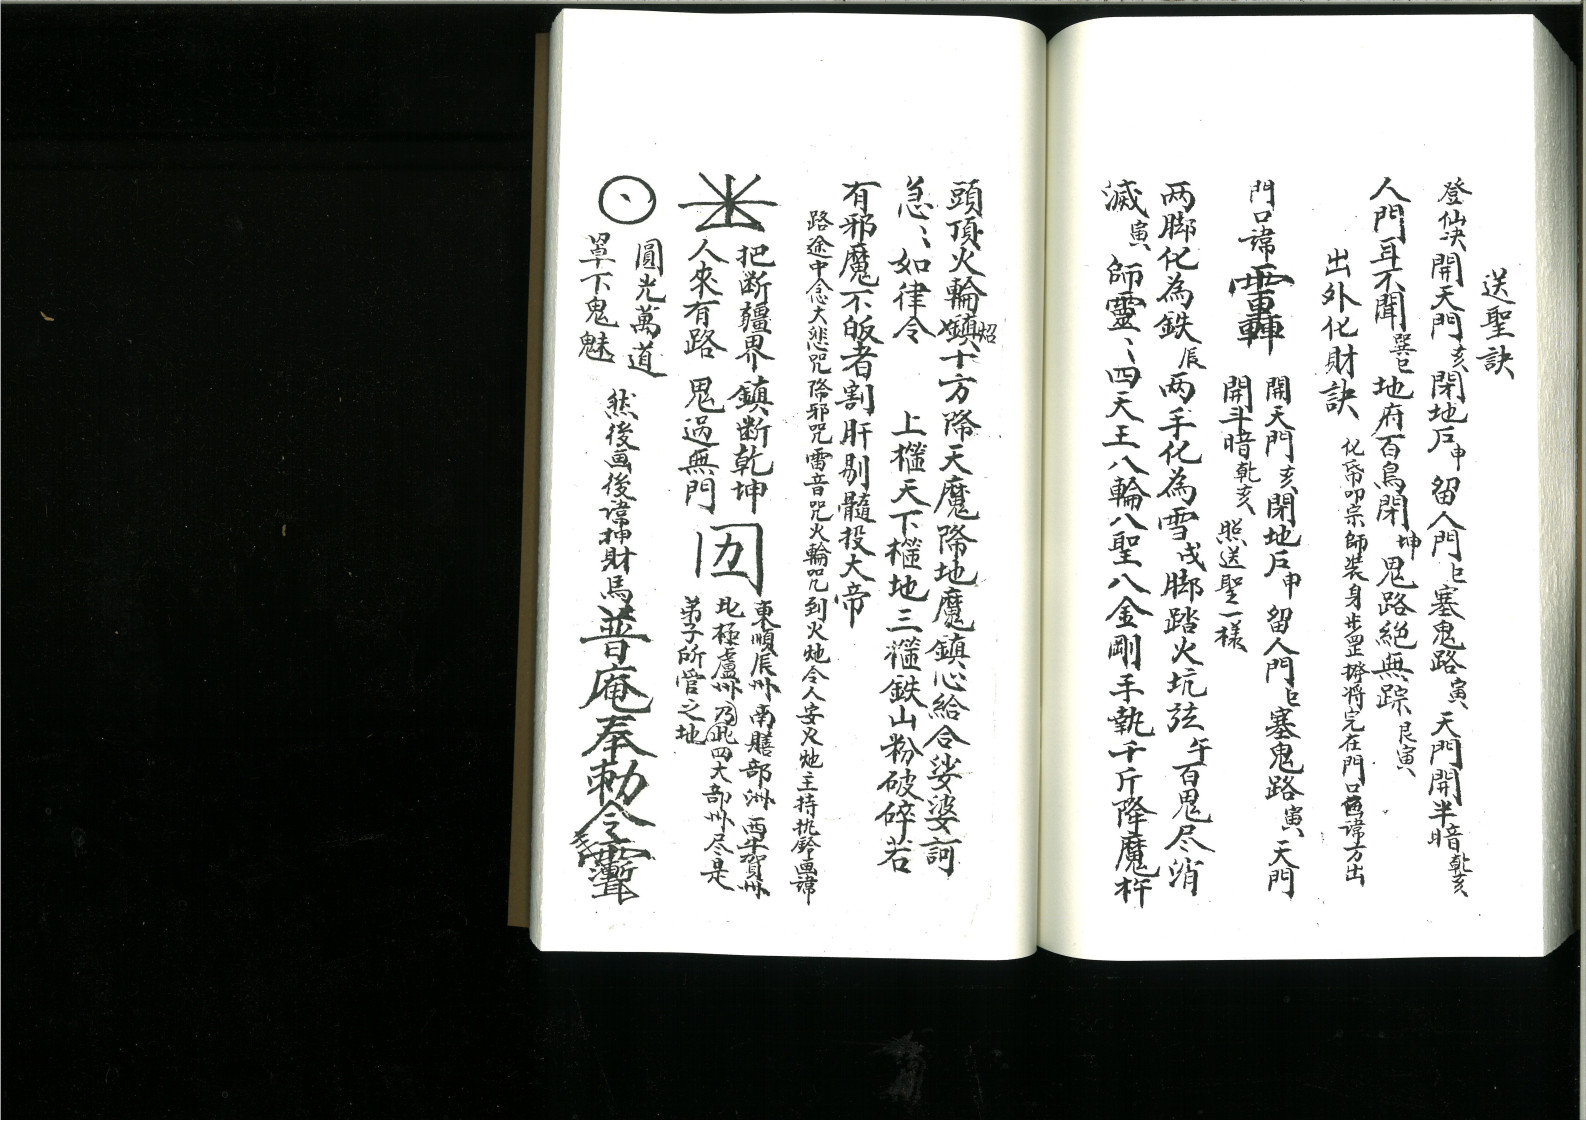 送聖訣
登仙决開天門亥閉地户申留人門巳塞鬼路寅天門開半暗乾亥
人門耳不聞巽巳地府百鳥閉坤鬼路絕無踪艮寅
出外化財訣 化帋叩宗師裝身步罡撥将完在門口画諱方出
門口諱 開天門亥閉地户申留人門巳塞鬼路寅天門
開斗暗乾亥 照送聖一樣
两脚化為鉄辰两手化為雪戌脚踏火坑弦午百鬼尽消
滅寅師靈〻四天王八輪八聖八金剛手執千斤降魔杵
頭頂火輪鎮炤十方降天魔降地魔鎮心給合娑婆訶
急〻如律令 上櫳天下櫳地三櫳鉄山粉破碎若
有邪魔不皈者割肝剔髓投大帝
路途中念大悲咒降邪咒雷音咒火輪咒到火炪令人安火炪主持執鈴画諱
把断疆界鎮断乾坤
人來有路鬼過無門
東順辰州南膳部洲西牛賀州
北極盧州乃此四大部州尽是
弟子所管之地
圓光萬道
罩下鬼魅
然後画後諱押財馬普庵奉勅令